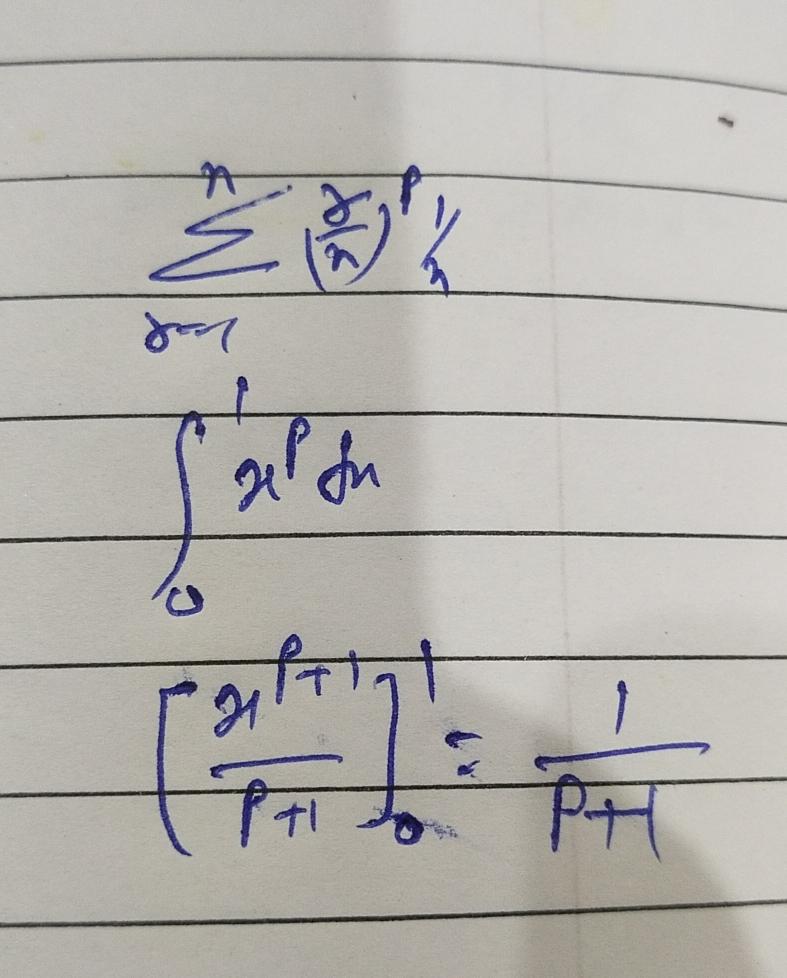 n
Σ (r/n)^p 1/n
r=1
∫₀¹ x^p dx
[x^(p+1)/(p+1)]₀¹ = 1/(p+1)